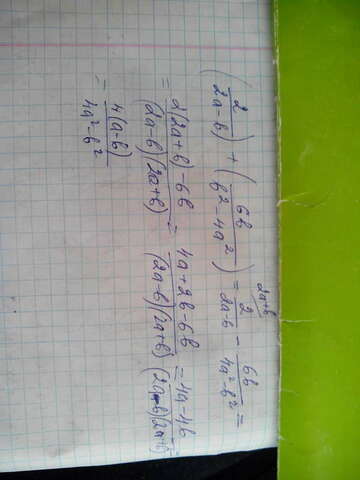 (2/(2a-b)) + (6b/(b²-4a²)) = 2a+b/ 2/(2a-b) - 6b/(4a²-b²) =
= (2(2a+b)-6b)/((2a-b)(2a+b)) = (4a+2b-6b)/((2a-b)(2a+b)) = (4a-4b)/((2a-b)(2a+b)) =
= 4(a-b)/(4a²-b²)